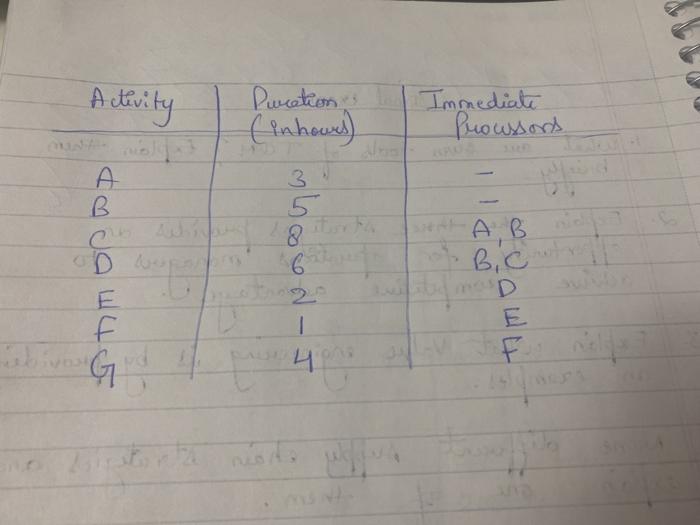 Activity Duration (in hours) Immediate Procussors
A 3 -
B 5 -
C 8 A, B
D 6 B, C
E 2 D
F 1 E
G 4 F